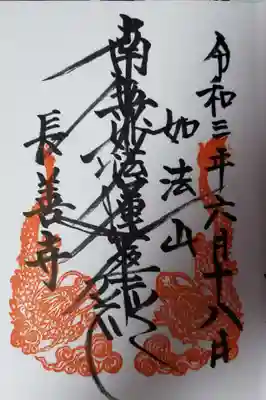 令和三年六月十八日
如法山
南無妙法蓮華経
長善寺